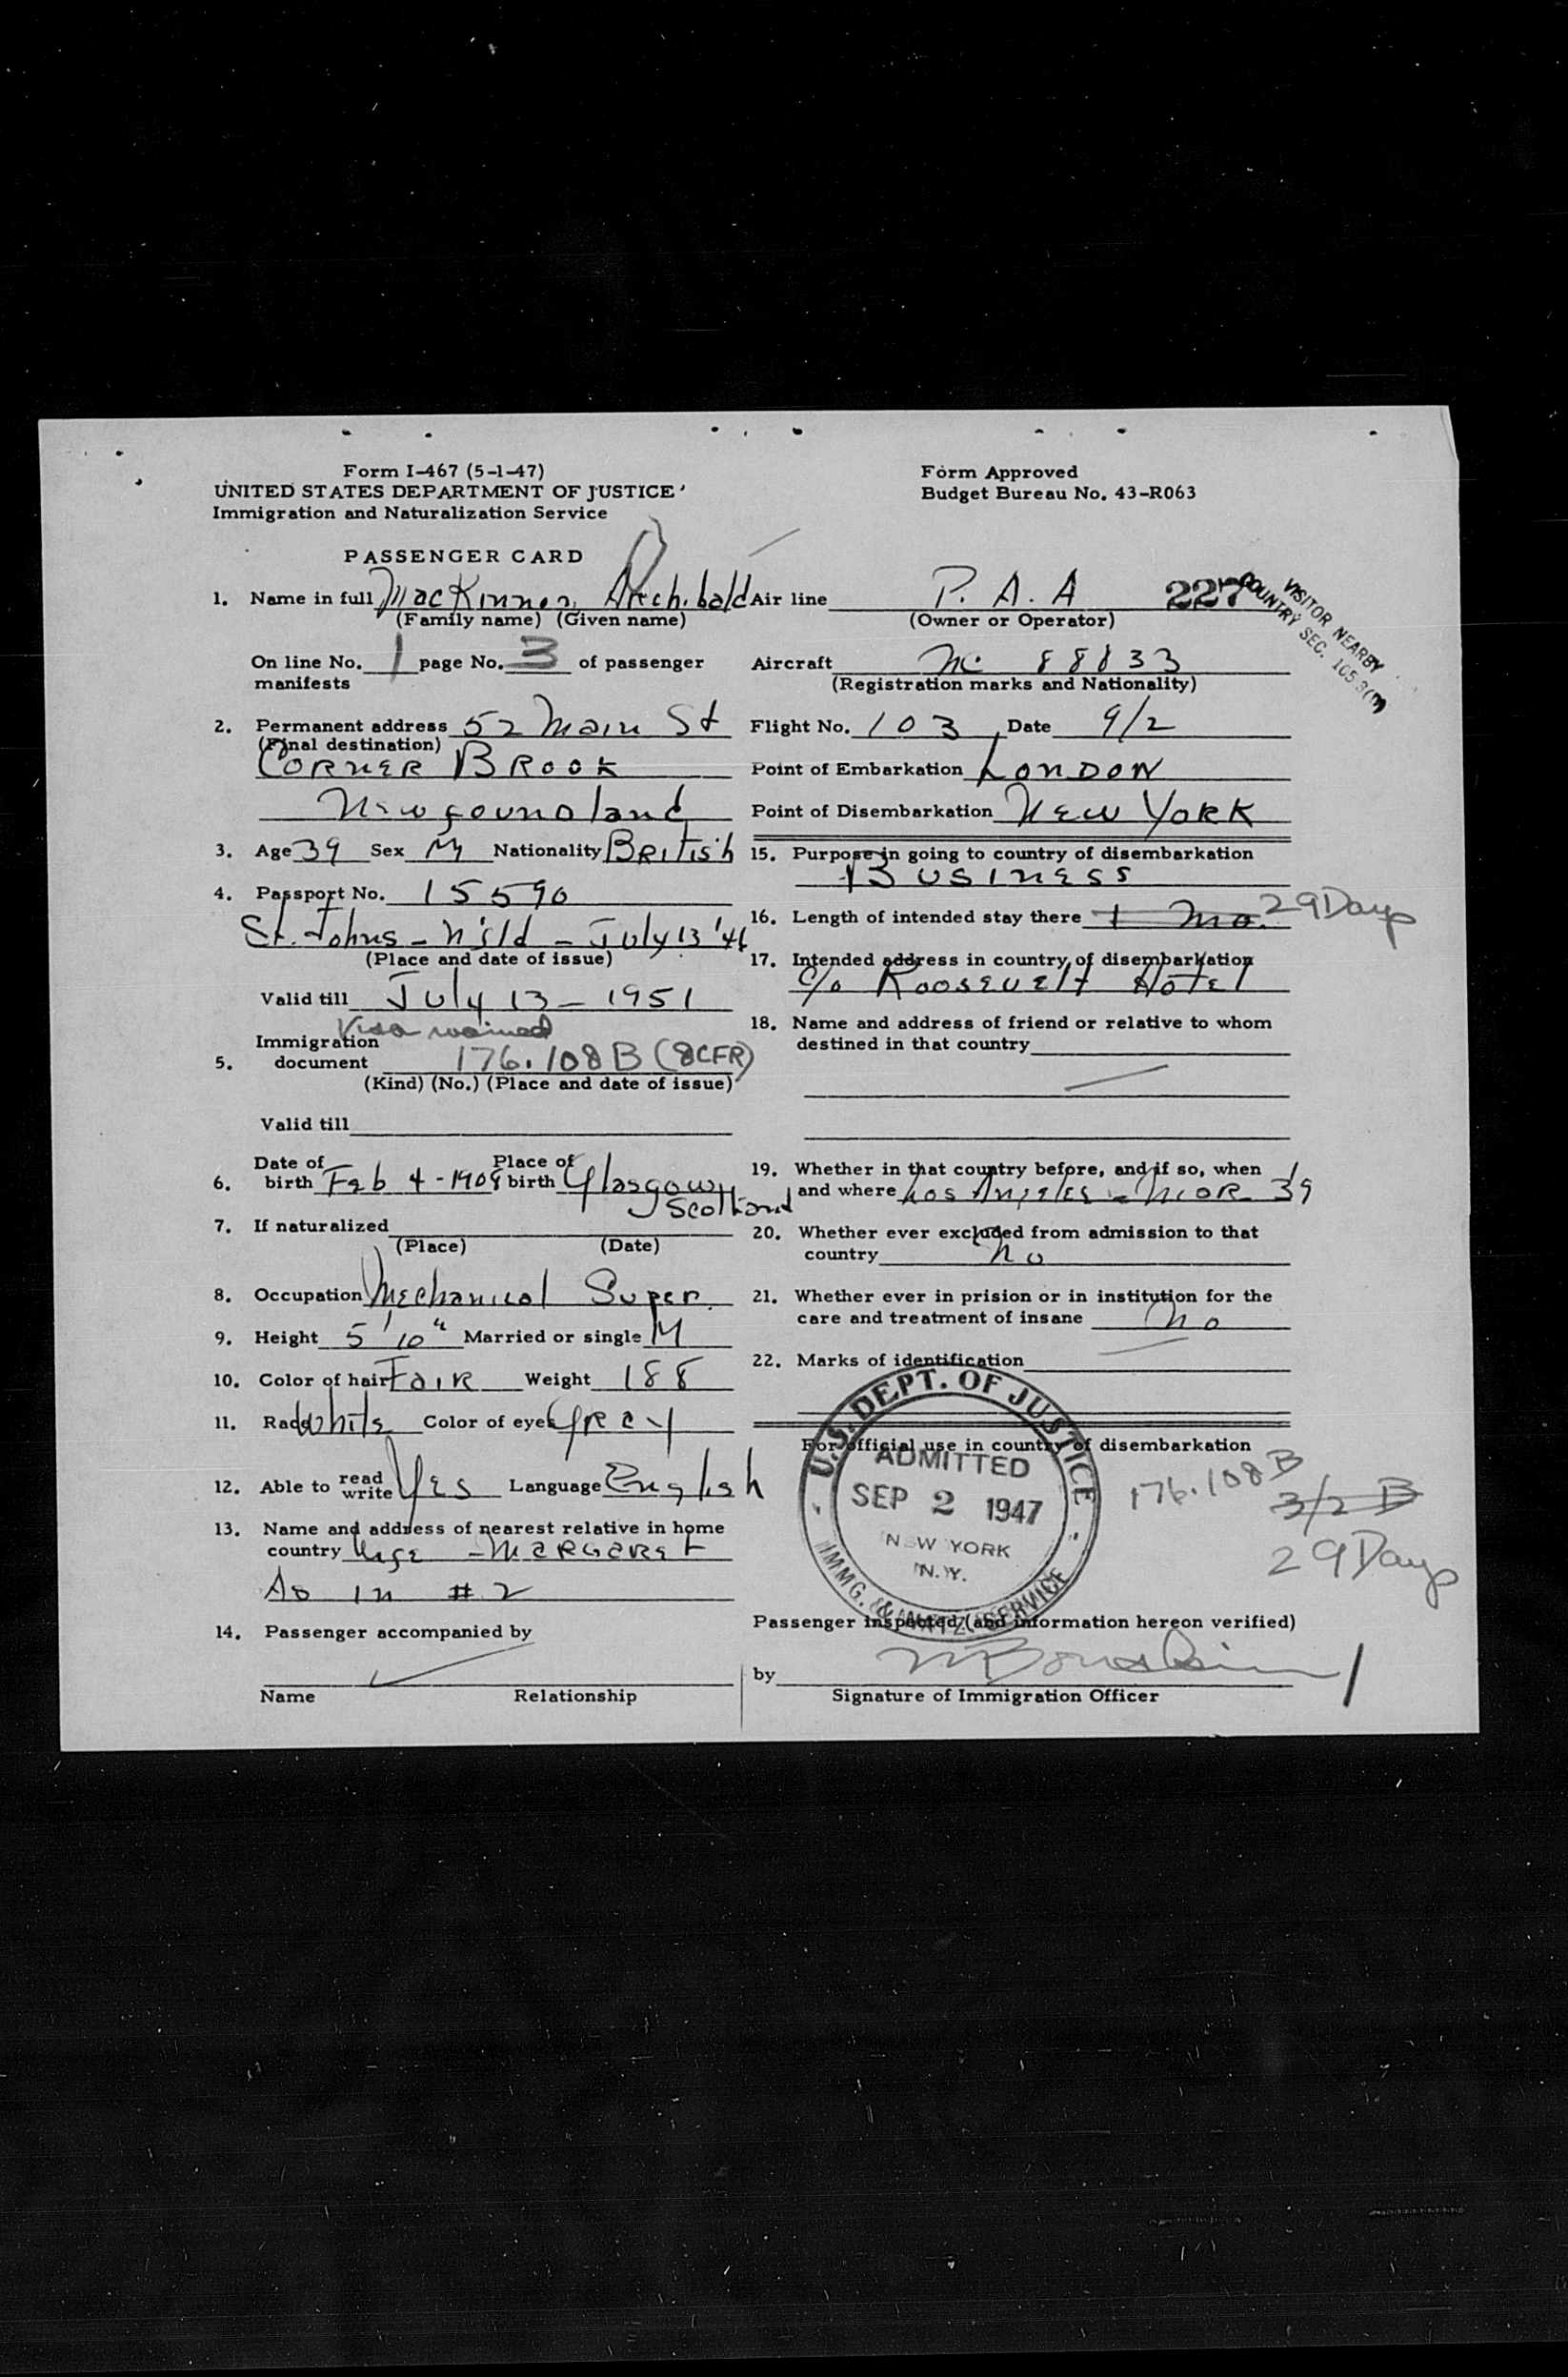 Form I-467 (5-1-47)
UNITED STATES DEPARTMENT OF JUSTICE
Immigration and Naturalization Service
Form Approved
Budget Bureau No. 43-R063
PASSENGER CARD
1. Name in full MacKinnon, Archibald
(Family name) (Given name)
On line No. 1 page No. 3 of passenger
manifests
2. Permanent address 52 Main St
(Final destination)
CORNER BROOK
Newfoundland
3. Age 39 Sex M Nationality British
4. Passport No. 15590
St. Johns - Nfld - July 13 '46
(Place and date of issue)
Valid till July 13 - 1951
Visa waived
Immigration
5. document 176.108B (8CFR)
(Kind) (No.) (Place and date of issue)
Valid till
Date of Place of
6. birth Feb 4 - 1908 birth Glasgow
Scotland
7. If naturalized
(Place) (Date)
8. Occupation Mechanical Super.
9. Height 5'10" Married or single M
10. Color of hair FaIR Weight 188
11. Race White Color of eyes Grey
12. Able to read write Yes Language English
13. Name and address of nearest relative in home
country Wife - MARGARET
As in #2
14. Passenger accompanied by
Name Relationship
Air line P. A. A
(Owner or Operator)
227
VISITOR NEARBY
COUNTRY SEC.
Aircraft NC 88833
(Registration marks and Nationality)
Flight No. 103 Date 9/2
Point of Embarkation LONDON
Point of Disembarkation NEW YORK
15. Purpose in going to country of disembarkation
BUSINESS
16. Length of intended stay there 1 Mo. 29 Days
17. Intended address in country of disembarkation
c/o Roosevelt Hotel
18. Name and address of friend or relative to whom
destined in that country
19. Whether in that country before, and if so, when
and where Los Angeles - Mar 39
20. Whether ever excluded from admission to that
country No
21. Whether ever in prision or in institution for the
care and treatment of insane No
22. Marks of identification
For official use in country of disembarkation
U.S. DEPT. OF JUSTICE
ADMITTED
SEP 2 1947
NEW YORK
N.Y.
IMMG. & NATZ. SERVICE
176.108B
3/2 B
29 Days
Passenger inspected (and information hereon verified)
by
Signature of Immigration Officer